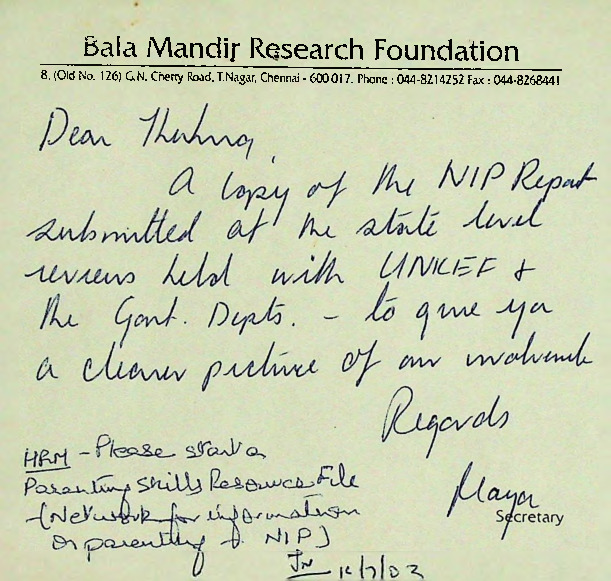 Bala Mandir Research Foundation
8, (Old No. 126) G.N. Chetty Road, T.Nagar, Chennai - 600 017. Phone : 044-8214252 Fax : 044-8268441
Dear
A copy of the NIP Report
submitted at the state level
reviews held with UNICEF &
the Govt. Depts. - to give you
a clearer picture of our involvement
Regards
Maya
Secretary
HRM - Please start a
Parenting Skills Resource File
(Network for information
on parenting + NIP)